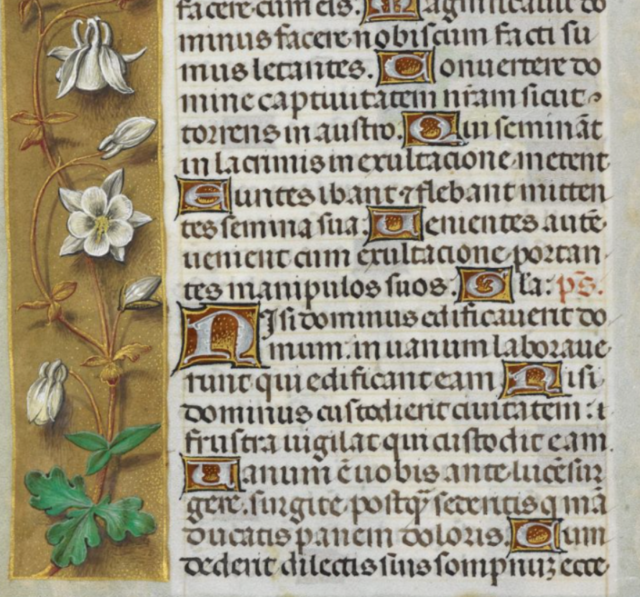 facere cum eis. Magnificauit do
minus facere nobiscum facti su
mus letantes. Conuertere do
mine captiuitatem nr̃am sicut
torrens in austro. Qui seminãt
in lacrimis in exultacione metent
Euntes ibant ⁊ flebant mitten
tes semina sua. Uenientes autẽ
uenient cum exultacione portan
tes manipulos suos. Gla. pš.
Nisi dominus edificauerit do
mum: in uanum laboraue
runt qui edificant eam Nisi
dominus custodierit ciuitatem: i
frustra uigilat qui custodit eam.
Uanum ẽ uobis ante lucẽ sur
gere. surgite postq̃ sederitis q mã
ducatis panem doloris. Cum
dederit dilectis suis sompnuꝫ ecce